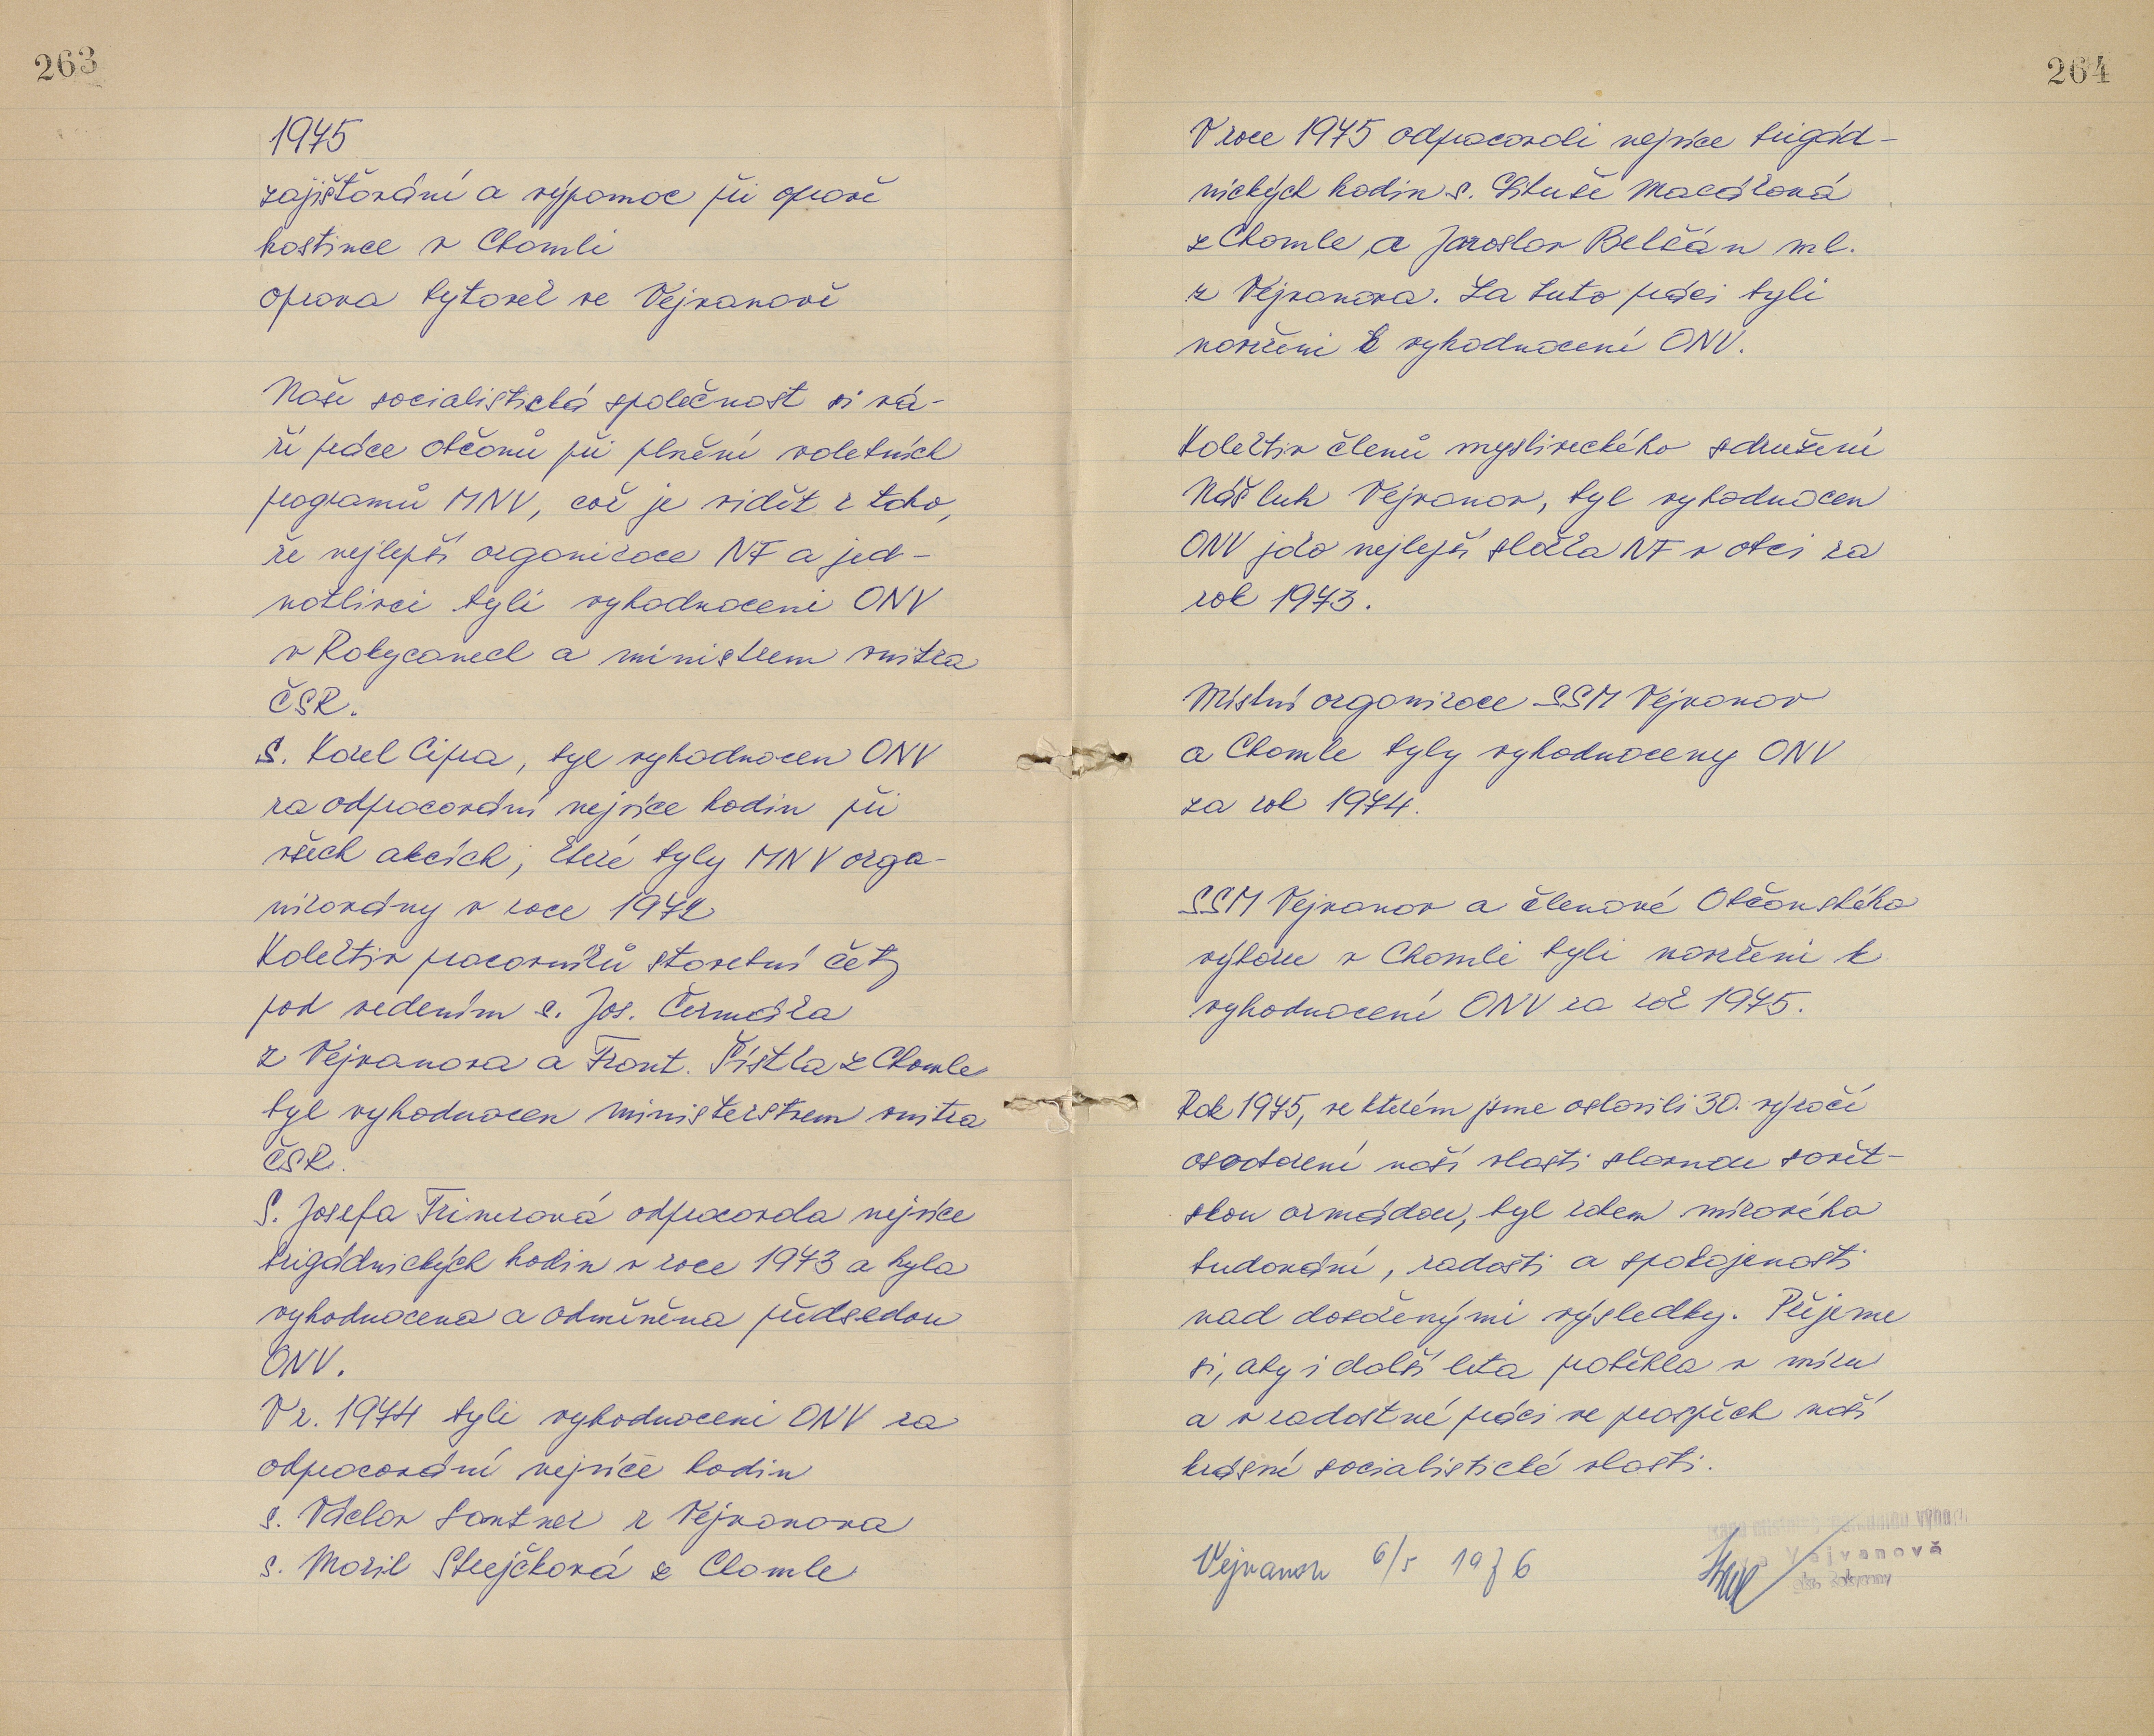 263
1975
zajišťování a výpomoc při opravě
hostince v Chomli
oprava bytovek ve Vejvanově
Naše socialistická společnost si vá-
ží práce občanů při plnění volebních
programů MNV, což je vidět z toho,
že nejlepší organizace NF a jed-
notlivci byli vyhodnoceni ONV
v Rokycanech a ministrem vnitra
ČSR.
S. Karel Cipra, byl vyhodnocen ONV
za odpracování nejvíce hodin při
všech akcích, které byly MNV orga-
nizovány v roce 1972
Kolektiv pracovníků stavební čety
pod vedením s. Jos. Čermáka
z Vejvanova a Frant. Šístka z Chomle
byl vyhodnocen ministerstvem vnitra
ČSR.
S. Josefa Trinerová odpracovala nejvíce
brigádnických hodin v roce 1973 a byla
vyhodnocena a odměněna předsedou
ONV.
V r. 1974 byli vyhodnoceni ONV za
odpracování nejvíce hodin
s. Václav Santner z Vejvanova
s. Strejčková z Chomle
264
V roce 1975 odpracovali nejvíce brigád-
nických hodin s. Libuše Macáková
z Chomle a Jaroslav Belčán ml.
z Vejvanova. Za tuto práci byli
navrženi k vyhodnocení ONV.
Kolektiv členů mysliveckého sdružení
Náš luh Vejvanov, byl vyhodnocen
ONV jako nejlepší složka NF v obci za
rok 1973.
Místní organizace SSM Vejvanov
a Chomle byly vyhodnoceny ONV
za rok 1974.
SSM Vejvanov a členové Občanského
výboru v Chomli byli navrženi k
vyhodnocení ONV za rok 1975.
Rok 1975, ve kterém jsme oslavili 30. výročí
osvobození naší vlasti slavnou sovět-
skou armádou, byl rokem mírového
budování, radosti a spokojenosti
nad dosaženými výsledky. Přejeme
si, aby i další léta proběhla v míru
a v radostné práci ve prospěch naší
krásné socialistické vlasti.
Vejvanov 6/5 1976
Vejvanově